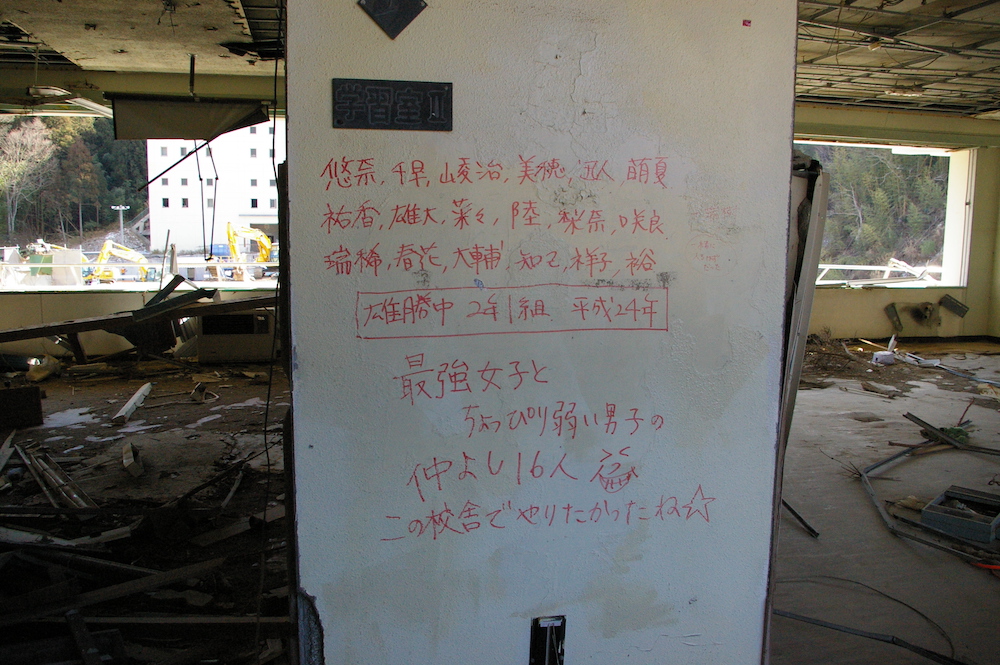 学習室Ⅱ
悠奈,千早,崚治,美穂,迅人,萌夏
祐香,雄大,菜々,陸,梨奈,咲良
瑞稀,春花,大輔,知己,祥子,裕
雄勝中 2年1組 平成24年
最強女子と
ちょっぴり弱い男子の
仲よし16人
この校舎でやりたかったね☆